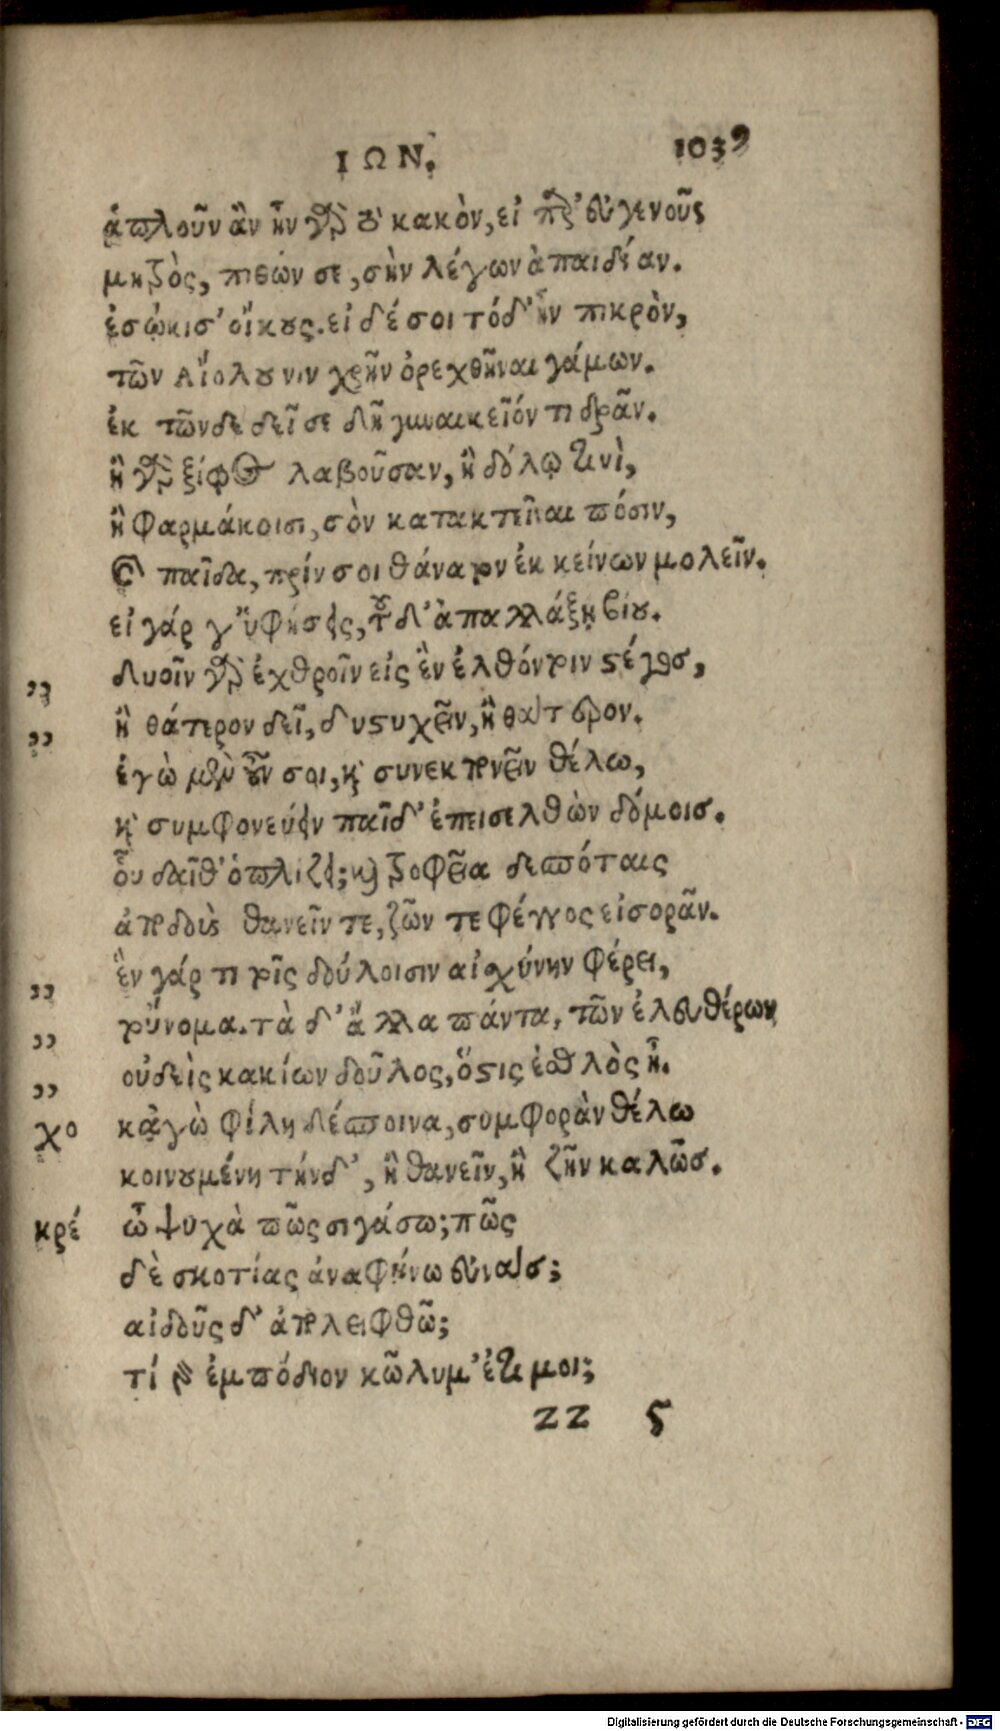 ΙΩΝ. 1039
ἁπλοῦν ἂν ἦν γὰρ τὸ κακὸν, εἰ παρ' εὐγενοῦς
μητρὸς, πιθών σε, σὴν λέγων ἀπαιδίαν.
ἐσῴκισ' οἴκους. εἰ δέ σοι τόδ' ἦν πικρὸν,
τῶν Αἰόλου νιν χρῆν ὀρεχθῆναι γάμων.
ἐκ τῶνδε δεῖ σε δὴ γυναικεῖόν τι δρᾶν.
ἢ γὰρ ξίφος λαβοῦσαν, ἢ δόλῳ τινὶ,
ἢ φαρμάκοισι, σὸν κατακτεῖναι πόσιν,
καὶ παῖδα, πρίν σοι θάνατον ἐκ κείνων μολεῖν.
εἰ γάρ γ' ὑφήσεις, τοῦδ' ἀπαλλάξῃ βίου.
,, δυοῖν γὰρ ἐχθροῖν εἰς ἓν ἐλθόντοιν στέγος,
,, ἢ θάτερον δεῖ, δυστυχεῖν, ἢ θάτερον.
ἐγὼ μὲν οὖν σοι, καὶ συνεκπονεῖν θέλω,
καὶ συμφονεύειν παῖδ' ἐπεισελθὼν δόμοις.
οὗ δαῖθ' ὁπλίζει; καὶ τροφεῖα δεσπόταις
ἀποδοὺς θανεῖν τε, ζῶν τε φέγγος εἰσορᾶν.
,, ἓν γάρ τι τοῖς δούλοισιν αἰσχύνην φέρει,
,, τοὔνομα. τὰ δ' ἄλλα πάντα, τῶν ἐλευθέρων
,, οὐδεὶς κακίων δοῦλος, ὅστις ἐσθλὸς ᾖ.
χο κᾀγὼ φίλη δέσποινα, συμφορὰν θέλω
κοινουμένη τήνδ', ἢ θανεῖν, ἢ ζῆν καλῶς.
κρέ ὦ ψυχὰ πῶς σιγάσω; πῶς
δὲ σκοτίας ἀναφήνω εὐνάς;
αἰδοῦς δ' ἀπολειφθῶ;
τί γὰρ ἐμπόδιον κῶλυμ' ἔτι μοι;
ZZ 5
Digitalisierung gefördert durch die Deutsche Forschungsgemeinschaft - DFG